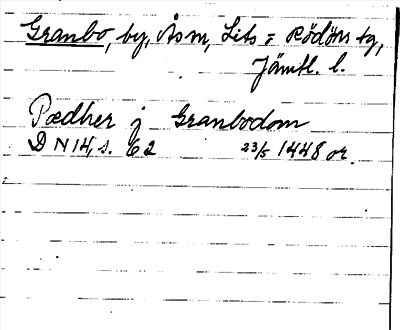 Granbo, by, Ås sn, Lits o Rödöns tg,
Jämtl. l.
Pædher j Granbodom
DN 14, s. 62 23/5 1448 or.